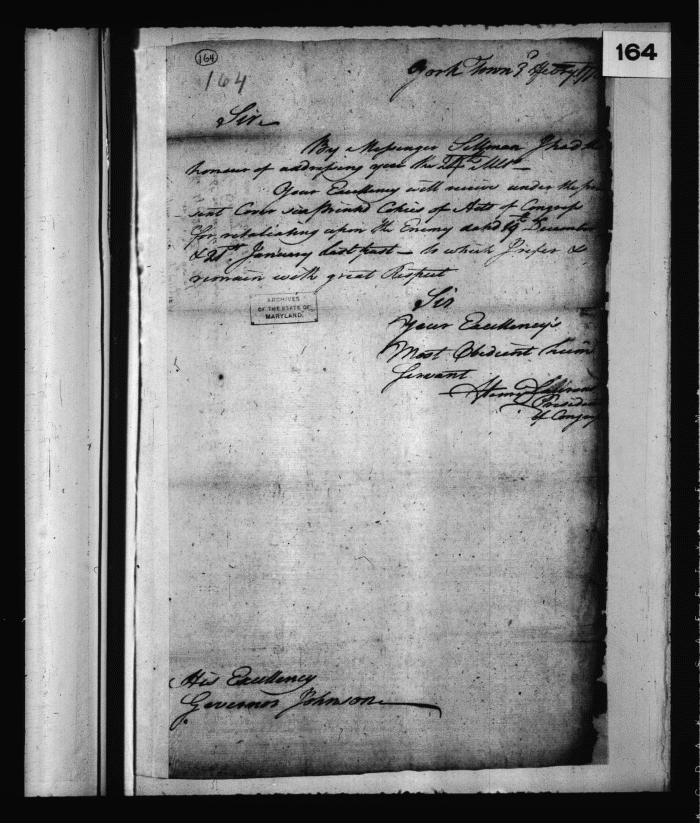 164
164
164
York Town 3d Feby
Sir
By Messenger Sellman I had the
honour of addressing you the 24th Ulto
Your Excellency will receive under the pre
sent Cover six Printed Copies of Acts of Congress
for retaliating upon the Enemy dated 19th December
& 21st January last past — to which I refer &
remain with great Respect
Sir
Your Excellency's
Most Obedient hum
Servant
Henry Laurens
Presiden
of Congress
ARCHIVES
OF THE STATE OF
MARYLAND.
His Excellency
Governor Johnson